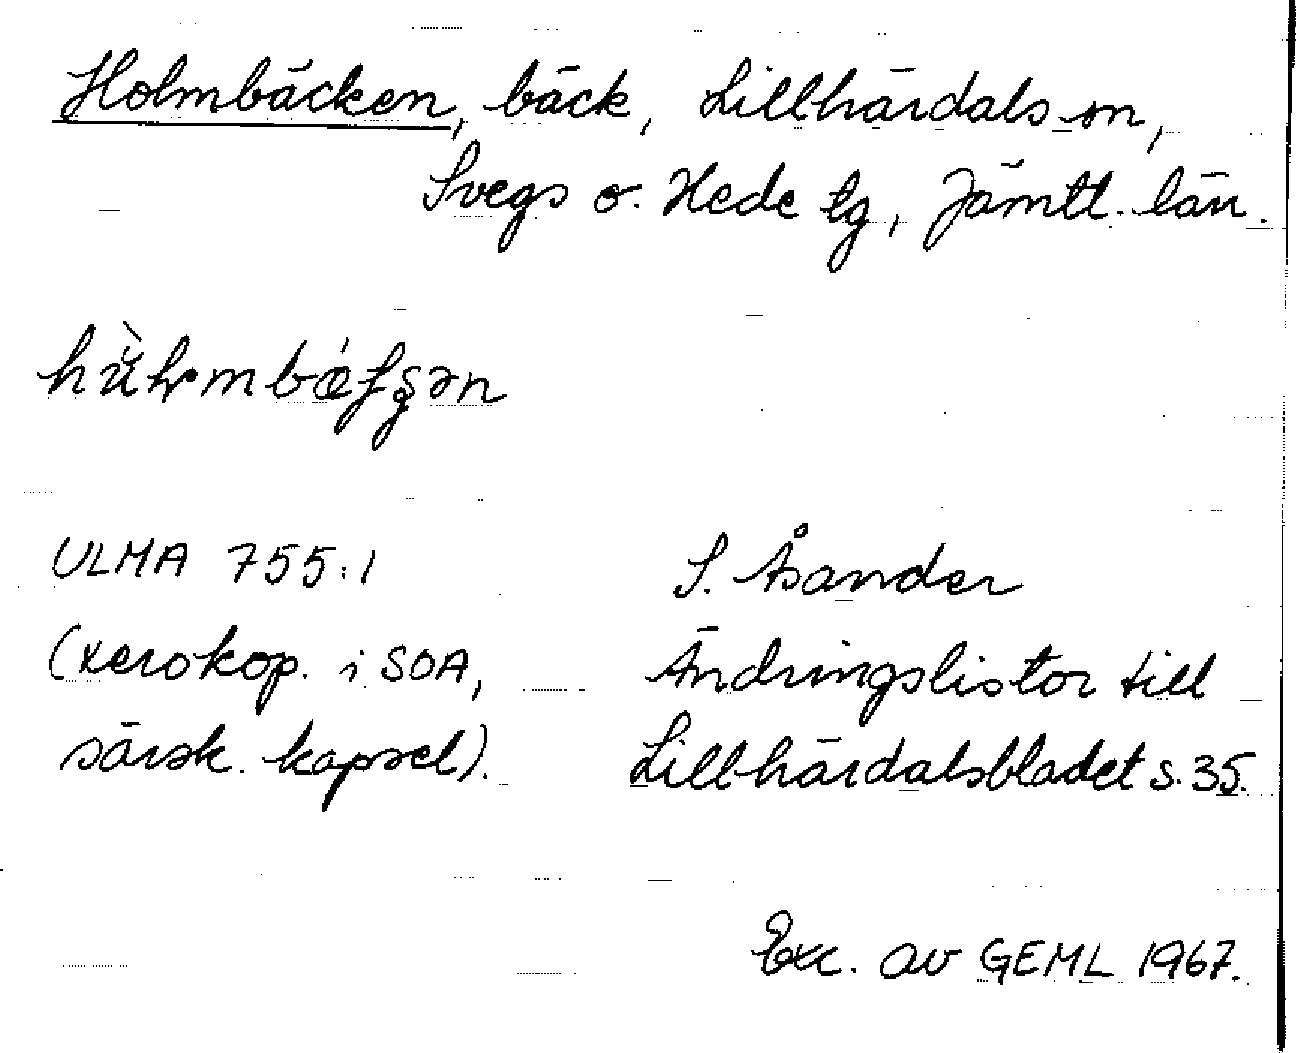 Holmbäcken, bäck, Lillhärdals sn,
Svegs o. Hede tg, Jämtl. län.
ULMA 755:1
(xerokop. i SOA,
särsk. kapsel).
S. Åsander
Ändringslistor till
Lillhärdalsbladet s. 35.
Exc. av GEML 1967.